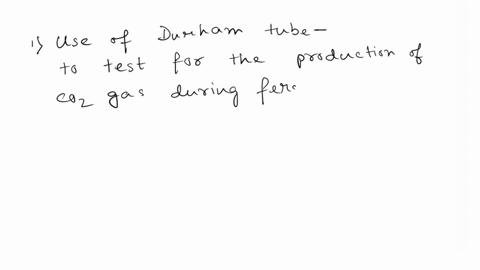 1) Use of Durham tube-
to test for the production of
CO2 gas during fer